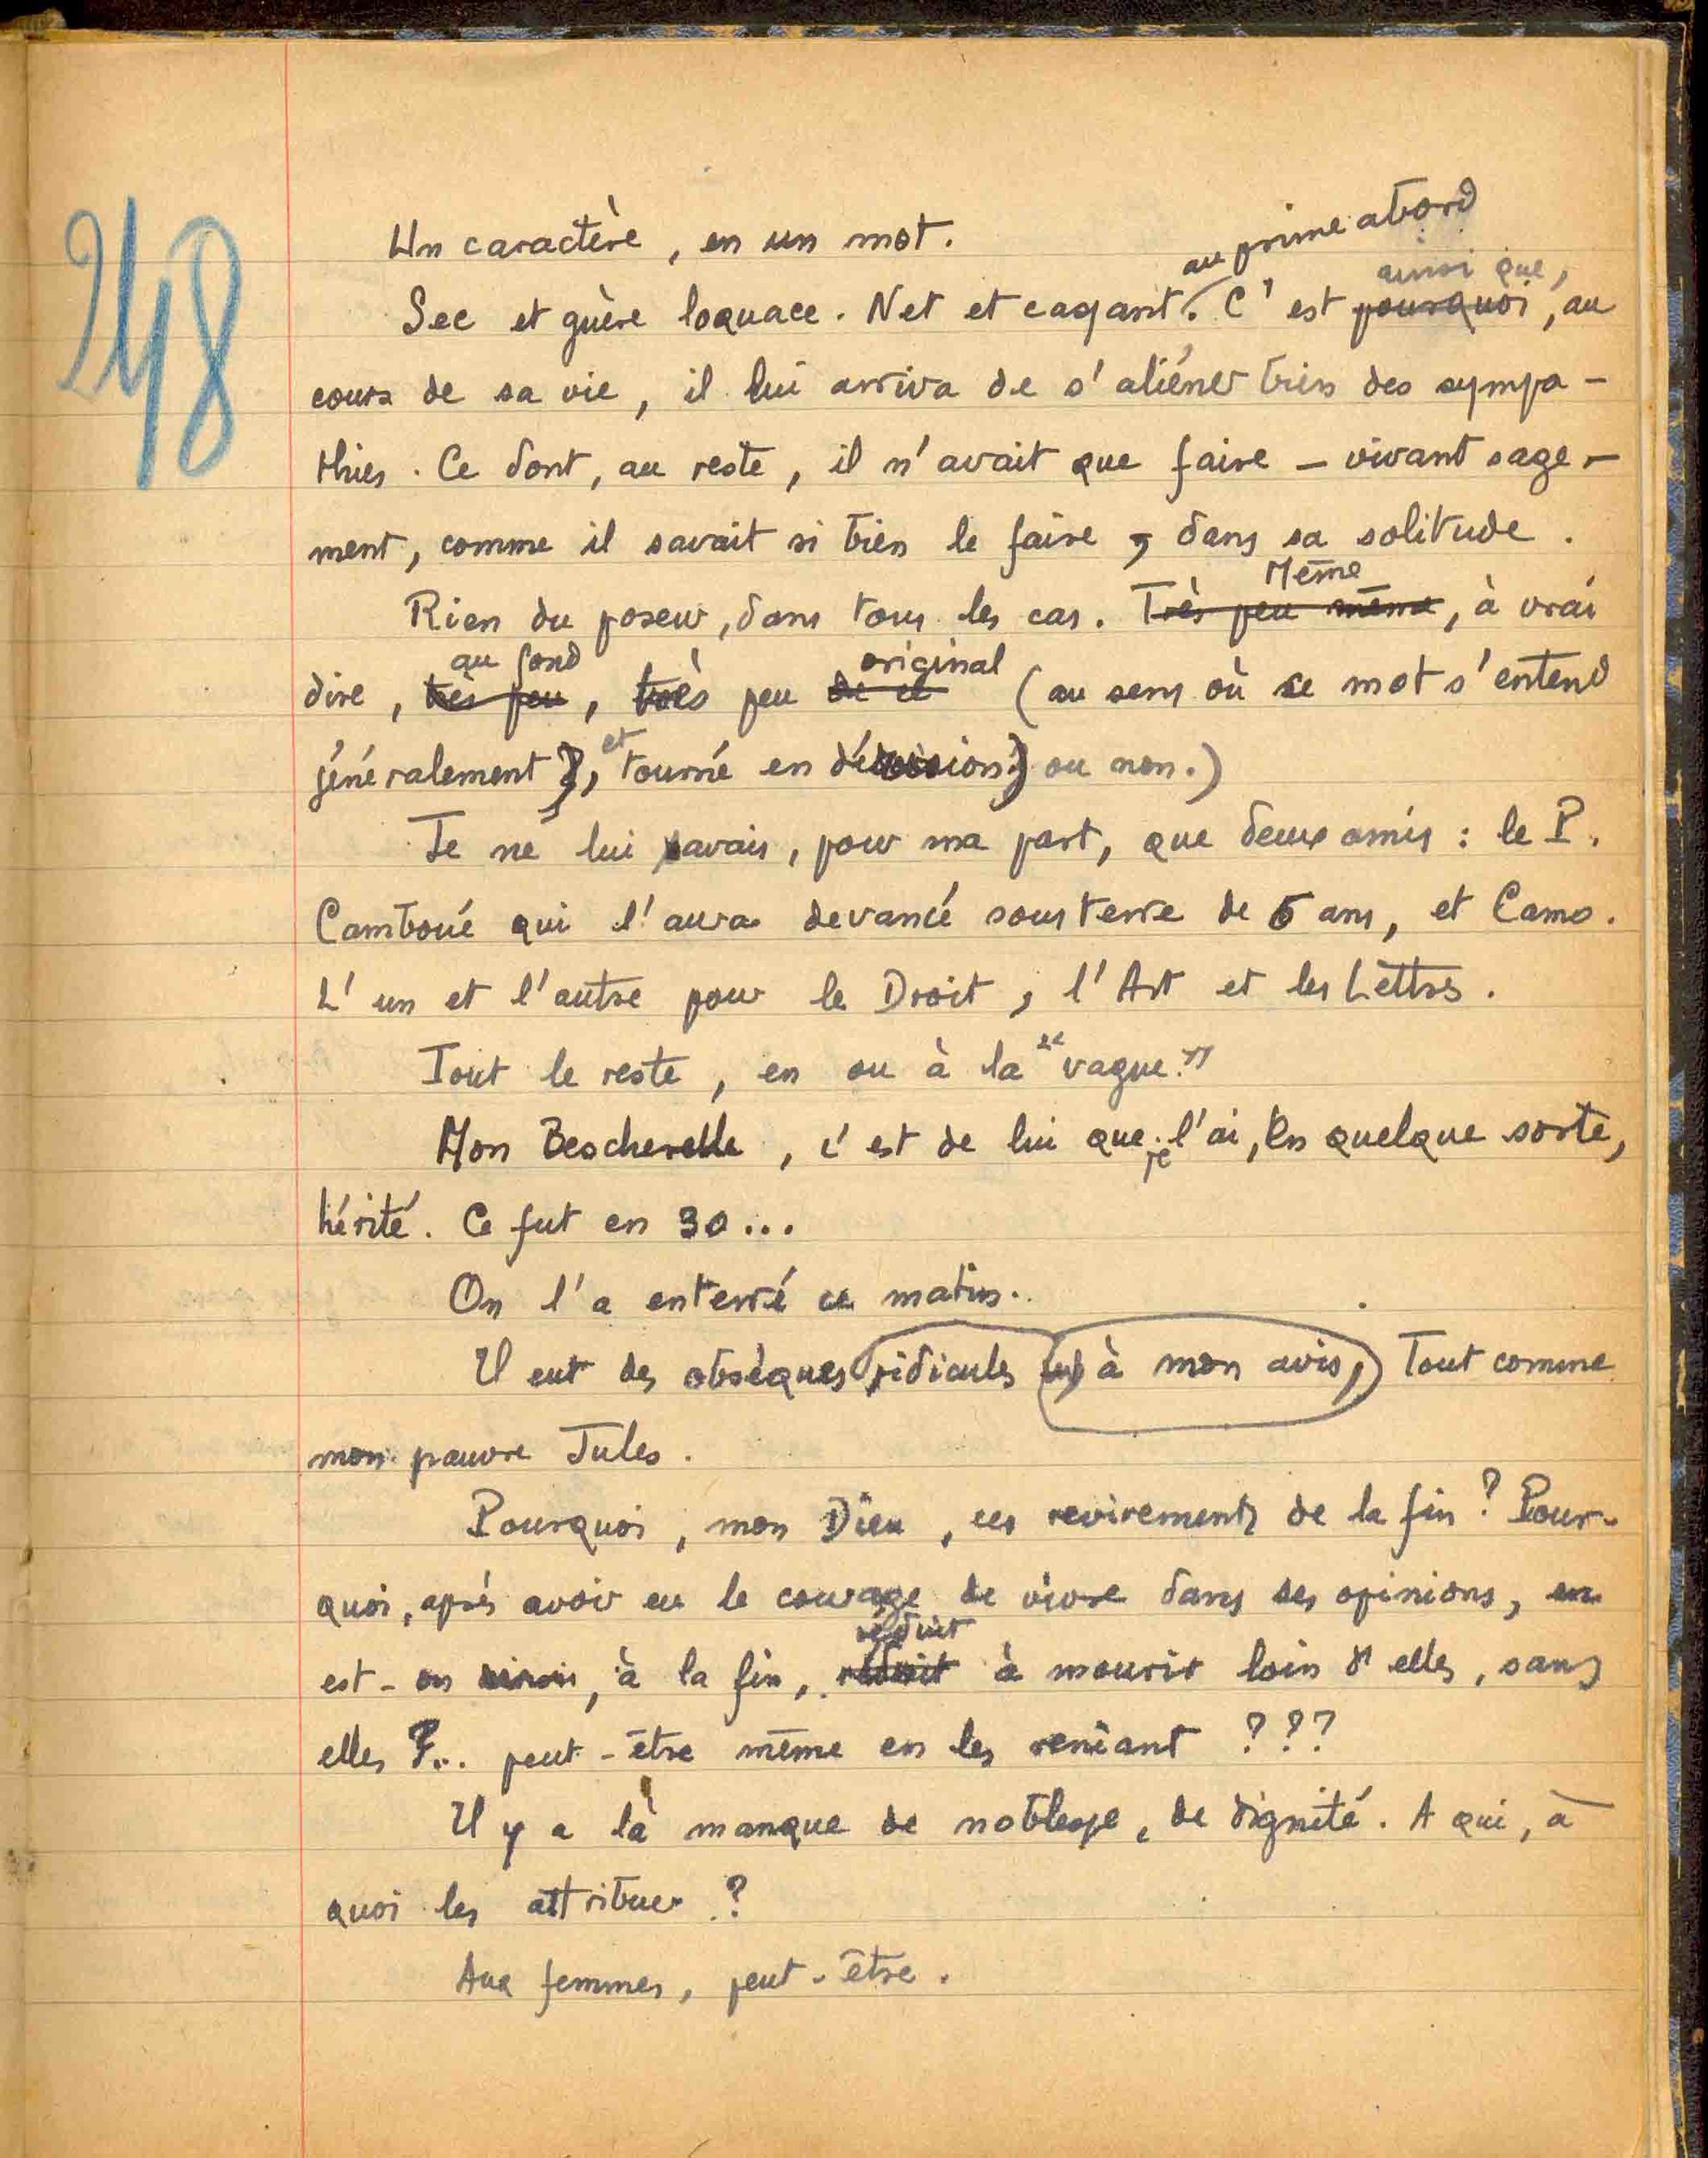 248
Un caractère, en un mot.
au prime abord
ainsi que,
Sec et guère loquace. Net et cagant. C'est pourquoi, au
cours de sa vie, il lui arriva de s'aliéner bien des sympa-
thies. Ce dont, au reste, il n'avait que faire – vivant sage-
ment, comme il savait si bien le faire, dans sa solitude.
Même
Rien du poseur, dans tous les cas. Très peu même, à vrai
au fond original
dire, très peu, très peu de ce (au sens où ce mot s'entend
et
généralement), tourné en dérision) ou non.)
Je ne lui savais, pour ma part, que deux amis : le P.
Camboué qui l'aura devancé sous terre de 5 ans, et Camo.
L'un et l'autre pour le Droit, l'Art et les Lettres.
Tout le reste, en ou à la "vague."
Mon Bescherelle, c'est de lui que je l'ai, en quelque sorte,
hérité. Ce fut en 30...
On l'a enterré ce matin.
Il eut des obsèques ridicules à mon avis, Tout comme
mon pauvre Jules.
Pourquoi, mon Dieu, ces revirements de la fin? Pour-
quoi, après avoir eu le courage de vivre dans ses opinions, en
réduit
est-on, à la fin, réduit à mourir loin d'elles, sans
elles?.. peut-être même en les reniant ???
Il y a là manque de noblesse, de dignité. A qui, à
quoi les attribuer ?
Aux femmes, peut-être.